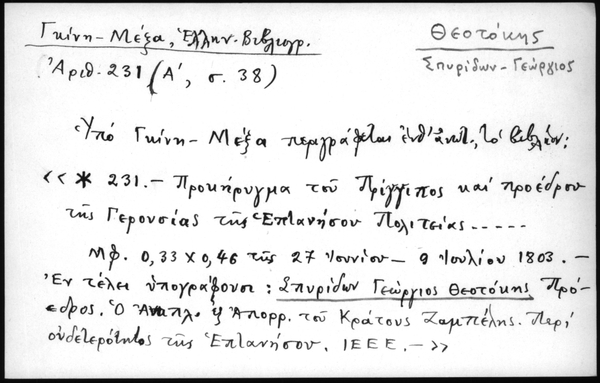 Γκίνη - Μέξα, Ἑλλην. Βιβλιογρ.
Θεοτόκης
Σπυρίδων - Γεώργιος
Ἀριθ. 231 (Α', σ. 38)
Ὑπό Γκίνη - Μέξα περιγράφεται ἐνθ' ἀνωτ., τό βιβλίον;
<< * 231. - Προκήρυγμα τοῦ Πρίγγιπος καί προέδρου
τῆς Γερουσίας τῆς Ἑπτανήσου Πολιτείας .....
Μφ. 0,33 x 0,46 τῆς 27 Ἰουνίου - 9 Ἰουλίου 1803. -
Ἐν τέλει ὑπογράφουσι : Σπυρίδων Γεώργιος Θεοτόκης Πρό-
εδρος. Ὁ ἐξ Ἀπορρ. τοῦ Κράτους Ζαμπέλης. Περί
οὐδετερότητος τῆς Ἑπτανήσου. ΙΕΕΕ. - >>